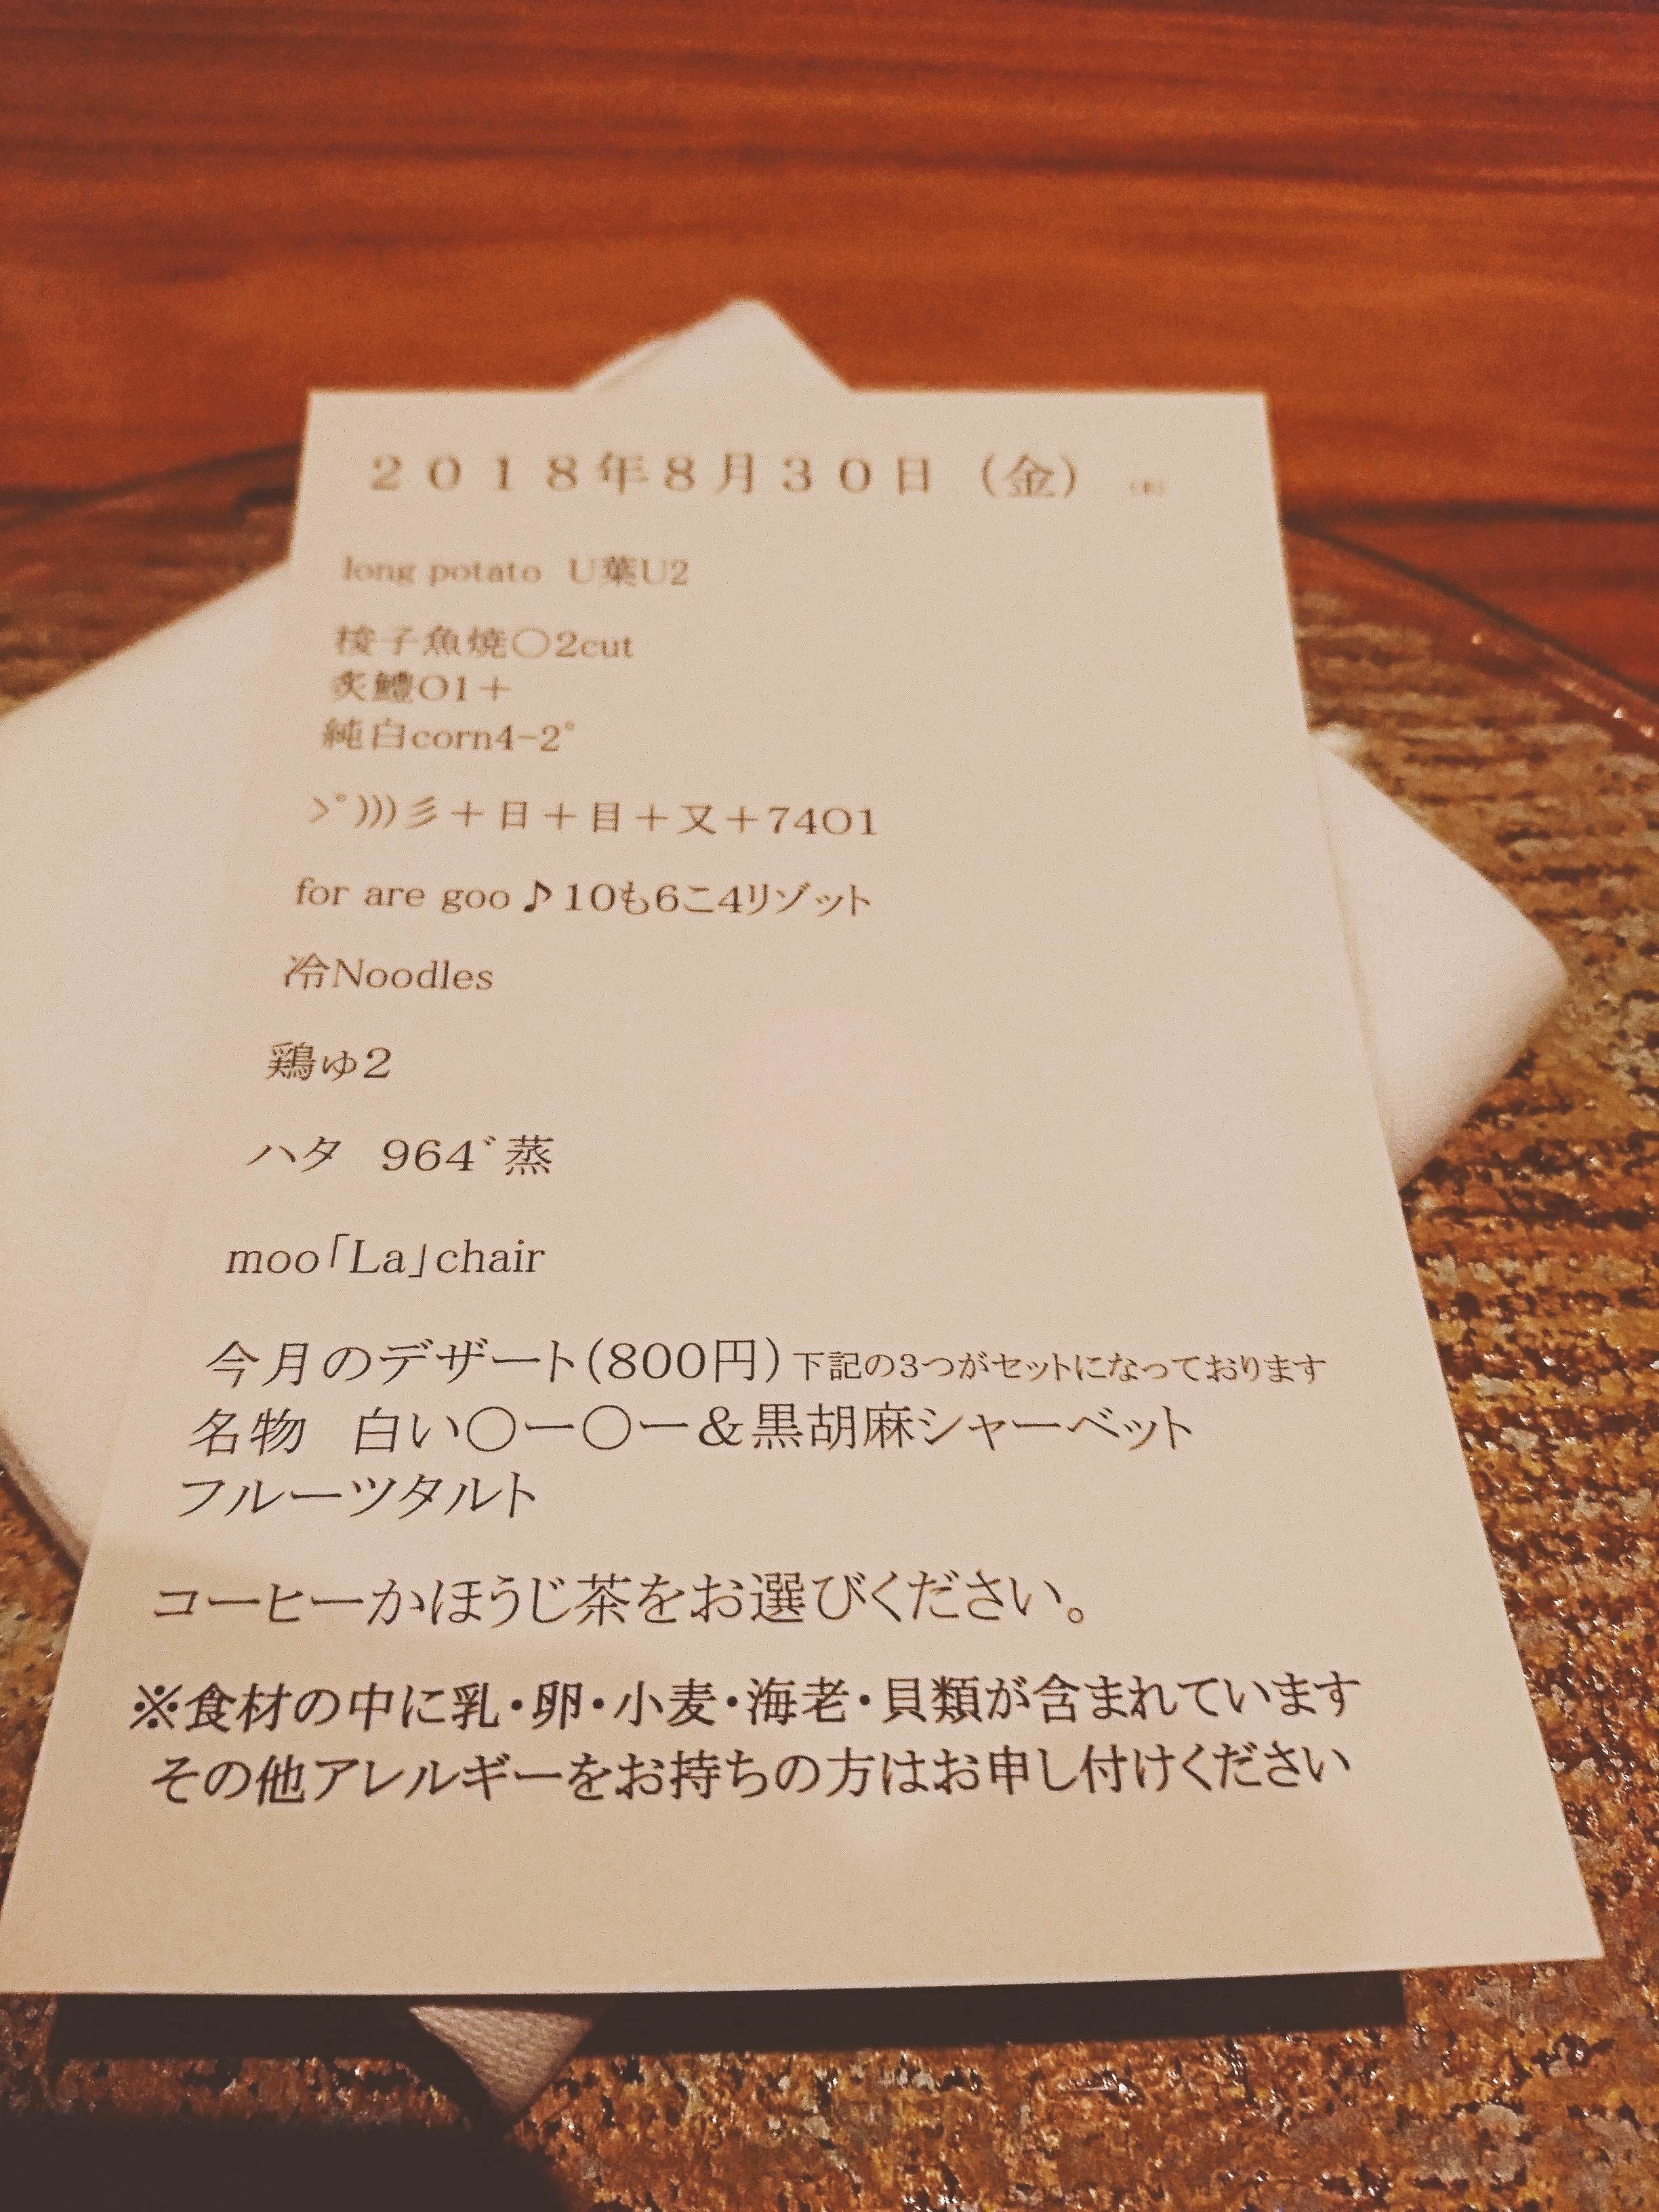 2018年8月30日（金）
long potato U葉U2
梭子魚焼〇2cut
炙鱧O1＋
純白corn4-2°
＞°)))彡＋日＋目＋又＋74O1
for are goo♪10も6こ4リゾット
冷Noodles
鶏ゅ2
ハタ 964゛蒸
moo「La」chair
今月のデザート(800円)下記の3つがセットになっております
名物 白い〇ー〇ー＆黒胡麻シャーベット
フルーツタルト
コーヒーかほうじ茶をお選びください。
※食材の中に乳・卵・小麦・海老・貝類が含まれています
その他アレルギーをお持ちの方はお申し付けください